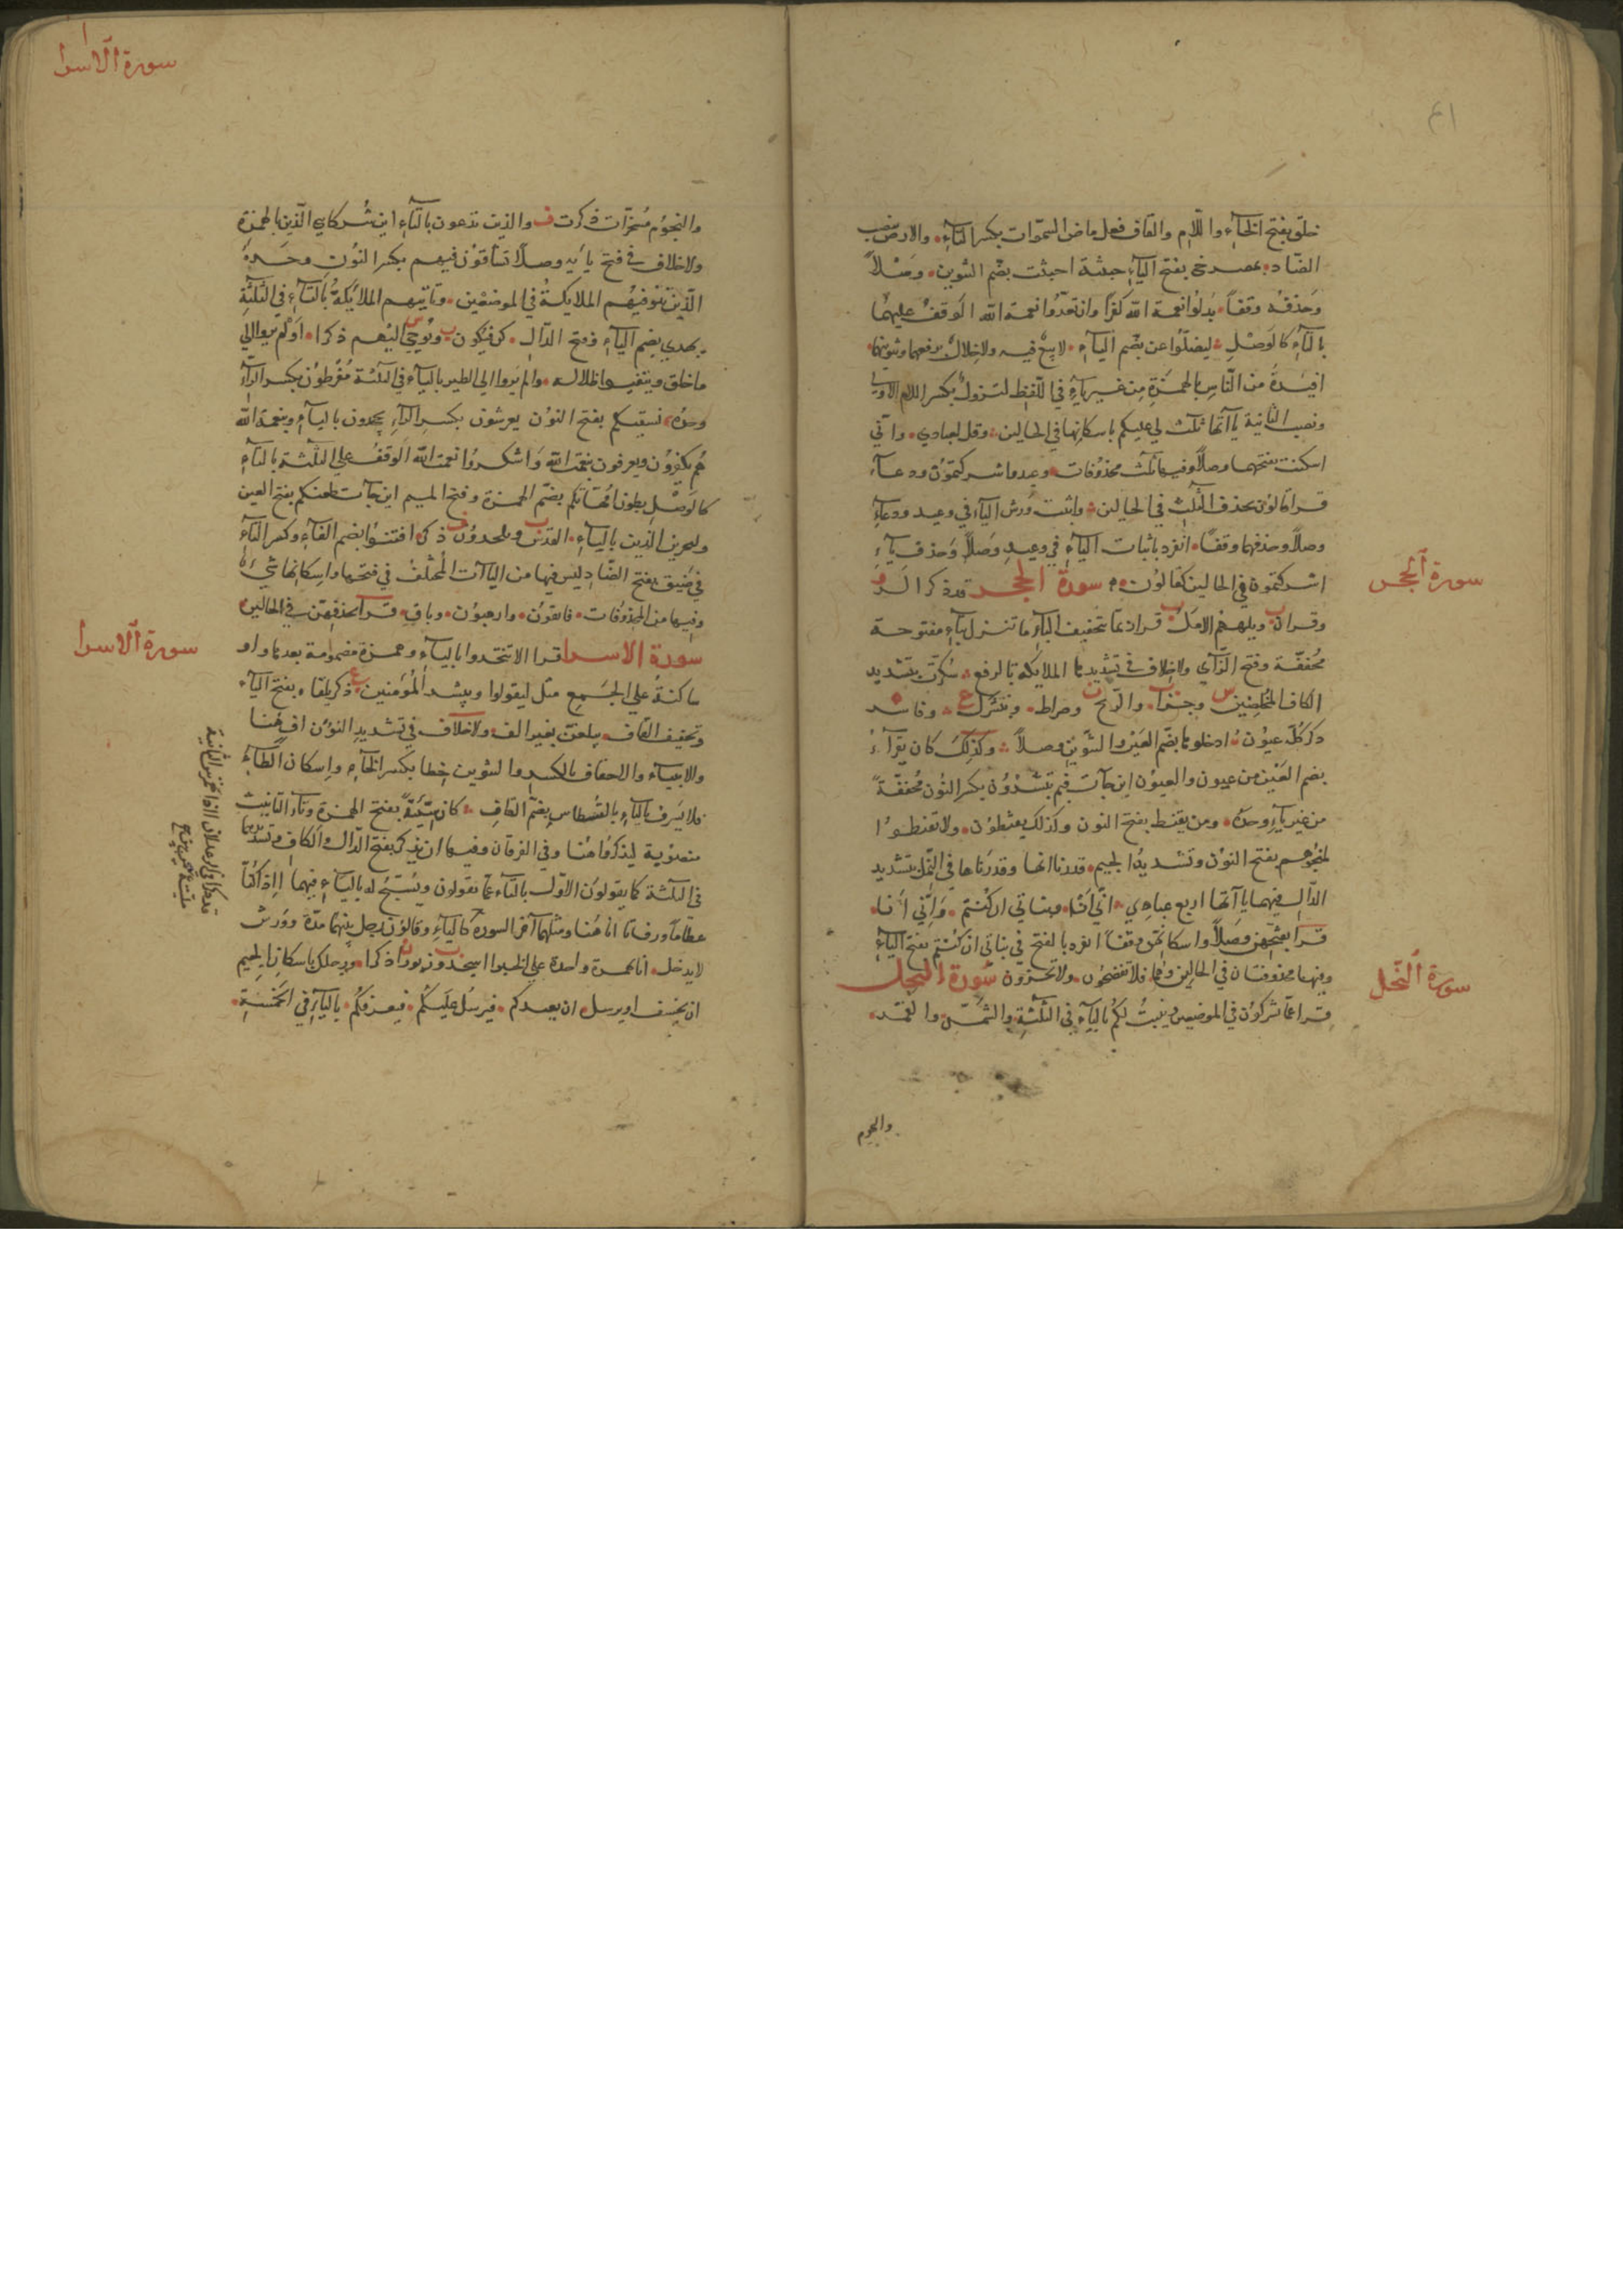 ٤١
خلق بفتح الخآء واللام والقاف فعل ماض السموات بكسر التآء والارض بنصب
الضاد بمصرخي بفتح اليآء خبيثة اجتثت بضم التنوين وصلاً
وحذفه وقفاً بدلوا نعمة الله كفرا وان تعدوا نعمة الله الوقف عليهما
بالتآء كالوصل ليضلوا عن بضم اليآء لا بيع فيه ولا خلال برفعهما وتنوينهما
افيدة من الناس بالهمزة من غير يآء في اللفظ لتزول بكسر اللام الاولى
ونصب الثانية ياآتها ثلث لي عليكم باسكانها في الحالين وقل لعبادي واني
اسكنت بفتحهما وصلاً وفيها ثلث محذوفات وعيد وما شركتمون ودعآء
قرا قالون بحذف الثلث في الحالين واثبت ورش اليآء في وعيد ودعآء
وصلاً وحذفهما وقفاً انفرد باثبات اليآء في وعيد وصلاً وحذف يآء
اشركتمون في الحالين كقالون سورة الحجر قد ذكر الر
سورة الحجر
وقران ويلههم الامل قرا ربما بتخفيف البآء ما تنزل بتآء مفتوحة
مخففة وفتح الزآي ولا خلاف في تشديدها الملايكة بالرفع سكرت بتشديد
الكاف المخلصين وجزء والريح وصراط وننزل وفاسر
ذكر كل عيون ادخلوها بضم العين والتنوين وصلاً وكذلك كان يقرآء
بضم العين من عيون والعيون اين جآت فبم تبشرون بكسر النون مخففة
من غير يآء وحده ومن يقنط بفتح النون وكذلك يقنطون ولا تقنطوا
لمنجوهم بفتح النون وتشديد الجيم قدرنا انها وقدرناها في النمل بتشديد
الدال فيهما ياآتها اربع عبادي اني انا وبناتي ان كنتم واني انا
قرا بفتحهن وصلاً واسكانهن وقفاً انفرد بالفتح في بناتي ان كنتم بفتح اليآء
وفيها محذوفتان في الحالين وهما فلا تفضحون ولا تخزون سورة النحل
سورة النحل
قرا عما تشركون في الموضعين وينبت لكم باليآء في الثلثة والشمس والقمر
والنجوم
سورة الاسرا
والنجوم مسخرات ذكرت ف والذين تدعون بالتآء اين شركاي الذين بالهمزة
ولا خلاف في فتح يآئه وصلاً تشاقون فيهم بكسر النون وحده
الذين تتوفيهم الملايكة في الموضعين وتاتيهم الملايكة بالتآء في الثلثة
يهدي بضم اليآء وفتح الدال كن فيكون ويوحي اليهم ذكرا اولم يروا الي
ما خلق ويتفيوا ظلاله والم يروا الي الطير باليآء في الثلثة مفرطون بكسر الرآء
وحده نسقيكم بفتح النون يعرشون بكسر الرآء يجحدون باليآء وبنعمة الله
هم يكفرون ويعرفون نعمت الله واشكروا نعمت الله الوقف علي الثلثة بالتآء
كالوصل بطون امهاتكم بضم الهمزة وفتح الميم اين جآت ظعنكم بفتح العين
وليجزين الذين باليآء القدس ويلحدون ذكرا فتنوا بضم الفآء وكسر التآء
في ضيق بفتح الضاد ليس فيها من اليآآت المختلف في فتحها واسكانها شيء
وفيها من المحذوفات فاتقون وارهبون وباق قرا بحذفهن في الحالين
سورة الاسرا قرا الا تتخذوا بالتآء وهمزة مضمومة بعدها واو
سورة الاسرا
ساكنة علي الجمع مثل ليقولوا ويبشر المؤمنين ذكر يلقاه بفتح اليآء
وتخفيف القاف يبلغن بغير الف ولا خلاف في تشديد النون اف هنا
والانبيآء والاحقاف بالكسر والتنوين خطا بكسر الخآء واسكان الطآء
فلا يسرف باليآء بالقسطاس بضم القاف كان سيئة بفتح الهمزة وتآء التانيث
منصوبة ليذكروا هنا وفي الفرقان وفيها ان يذكر بفتح الذال والكاف وتشديدهما
في الثلثة كما يقولون الاول بالتآء عما تقولون ويسبح له باليآء فيهما ااذا كنا
عظاماً ورفاتا انا هنا ومثلهما آخر السورة كاليآء وقالون يدخل بينهما مدة وورش
لا يدخل انا بهمزة واحدة علي الخبر ااسجد زبورا ذكرا ورجلك باسكان الجيم
ان يخسف او يرسل ان يعيدكم فيرسل عليكم فيغرقكم باليآء في الخمسة